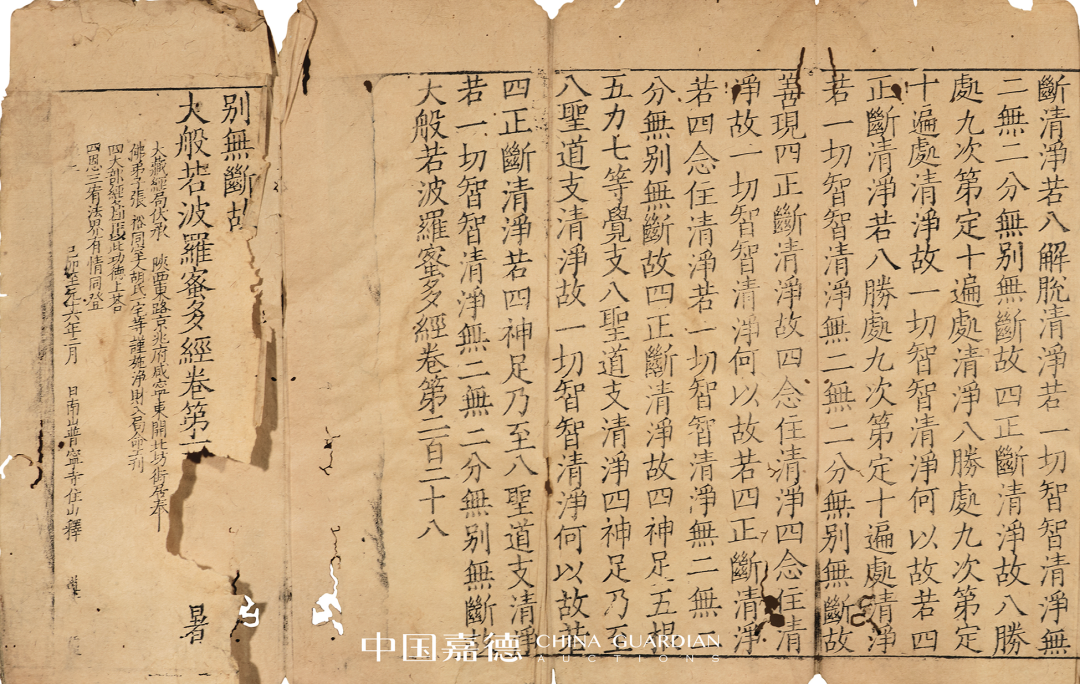 斷清淨若八解脫清淨若一切智智清淨無
二無二分無別無斷故四正斷清淨故八勝
處九次第定十遍處清淨八勝處九次第定
十遍處清淨故一切智智清淨何以故若四
正斷清淨若八勝處九次第定十遍處清淨
若一切智智清淨無二無二分無別無斷故
善現四正斷清淨故四念住清淨四念住清
淨故一切智智清淨何以故若四正斷清淨
若四念住清淨若一切智智清淨無二無二
分無別無斷故四正斷清淨故四神足五根
五力七等覺支八聖道支清淨四神足乃至
八聖道支清淨故一切智智清淨何以故若
四正斷清淨若四神足乃至八聖道支清淨
若一切智智清淨無二無二分無別無斷
大般若波羅蜜多經卷第二百二十八
別無斷故
大般若波羅蜜多經卷第
暑
大藏經局伏承 陝西東路京兆府咸寧東開北坊街居奉
佛弟子張 裕同室人胡氏一宅等謹施淨財入局命工刊
四大部經各此功德上荅
四恩三有法界有情同登
六年二月 日南山普寧寺住山釋
中国嘉德 CHINA GUARDIAN
AUCTIONS